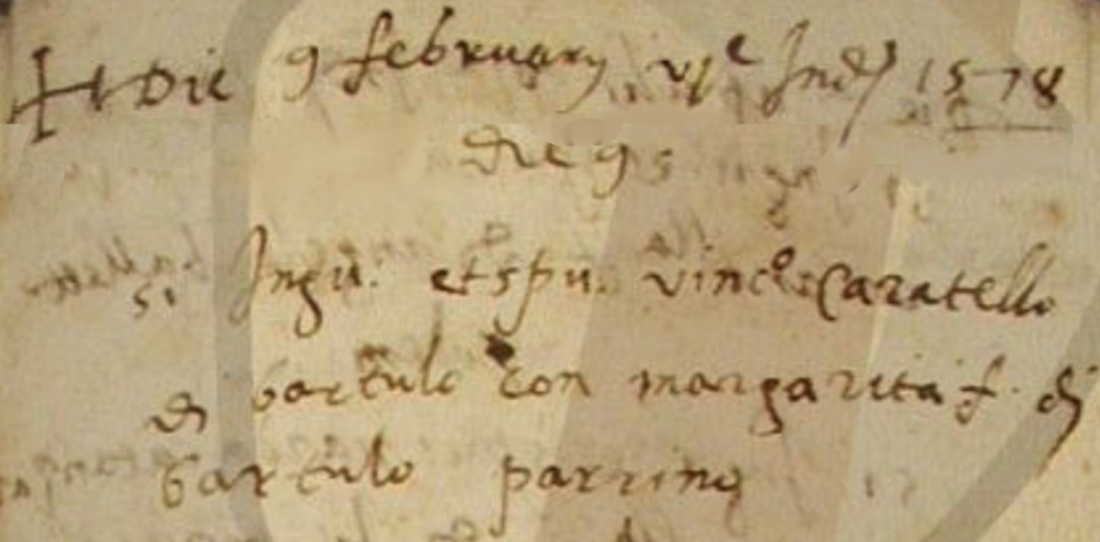 Die 9 february vj^e Ind) 1578
die 9
si Ingu. et spu. vinc^o Caratello
di bartulo con margarita f. di
bartulo parrino